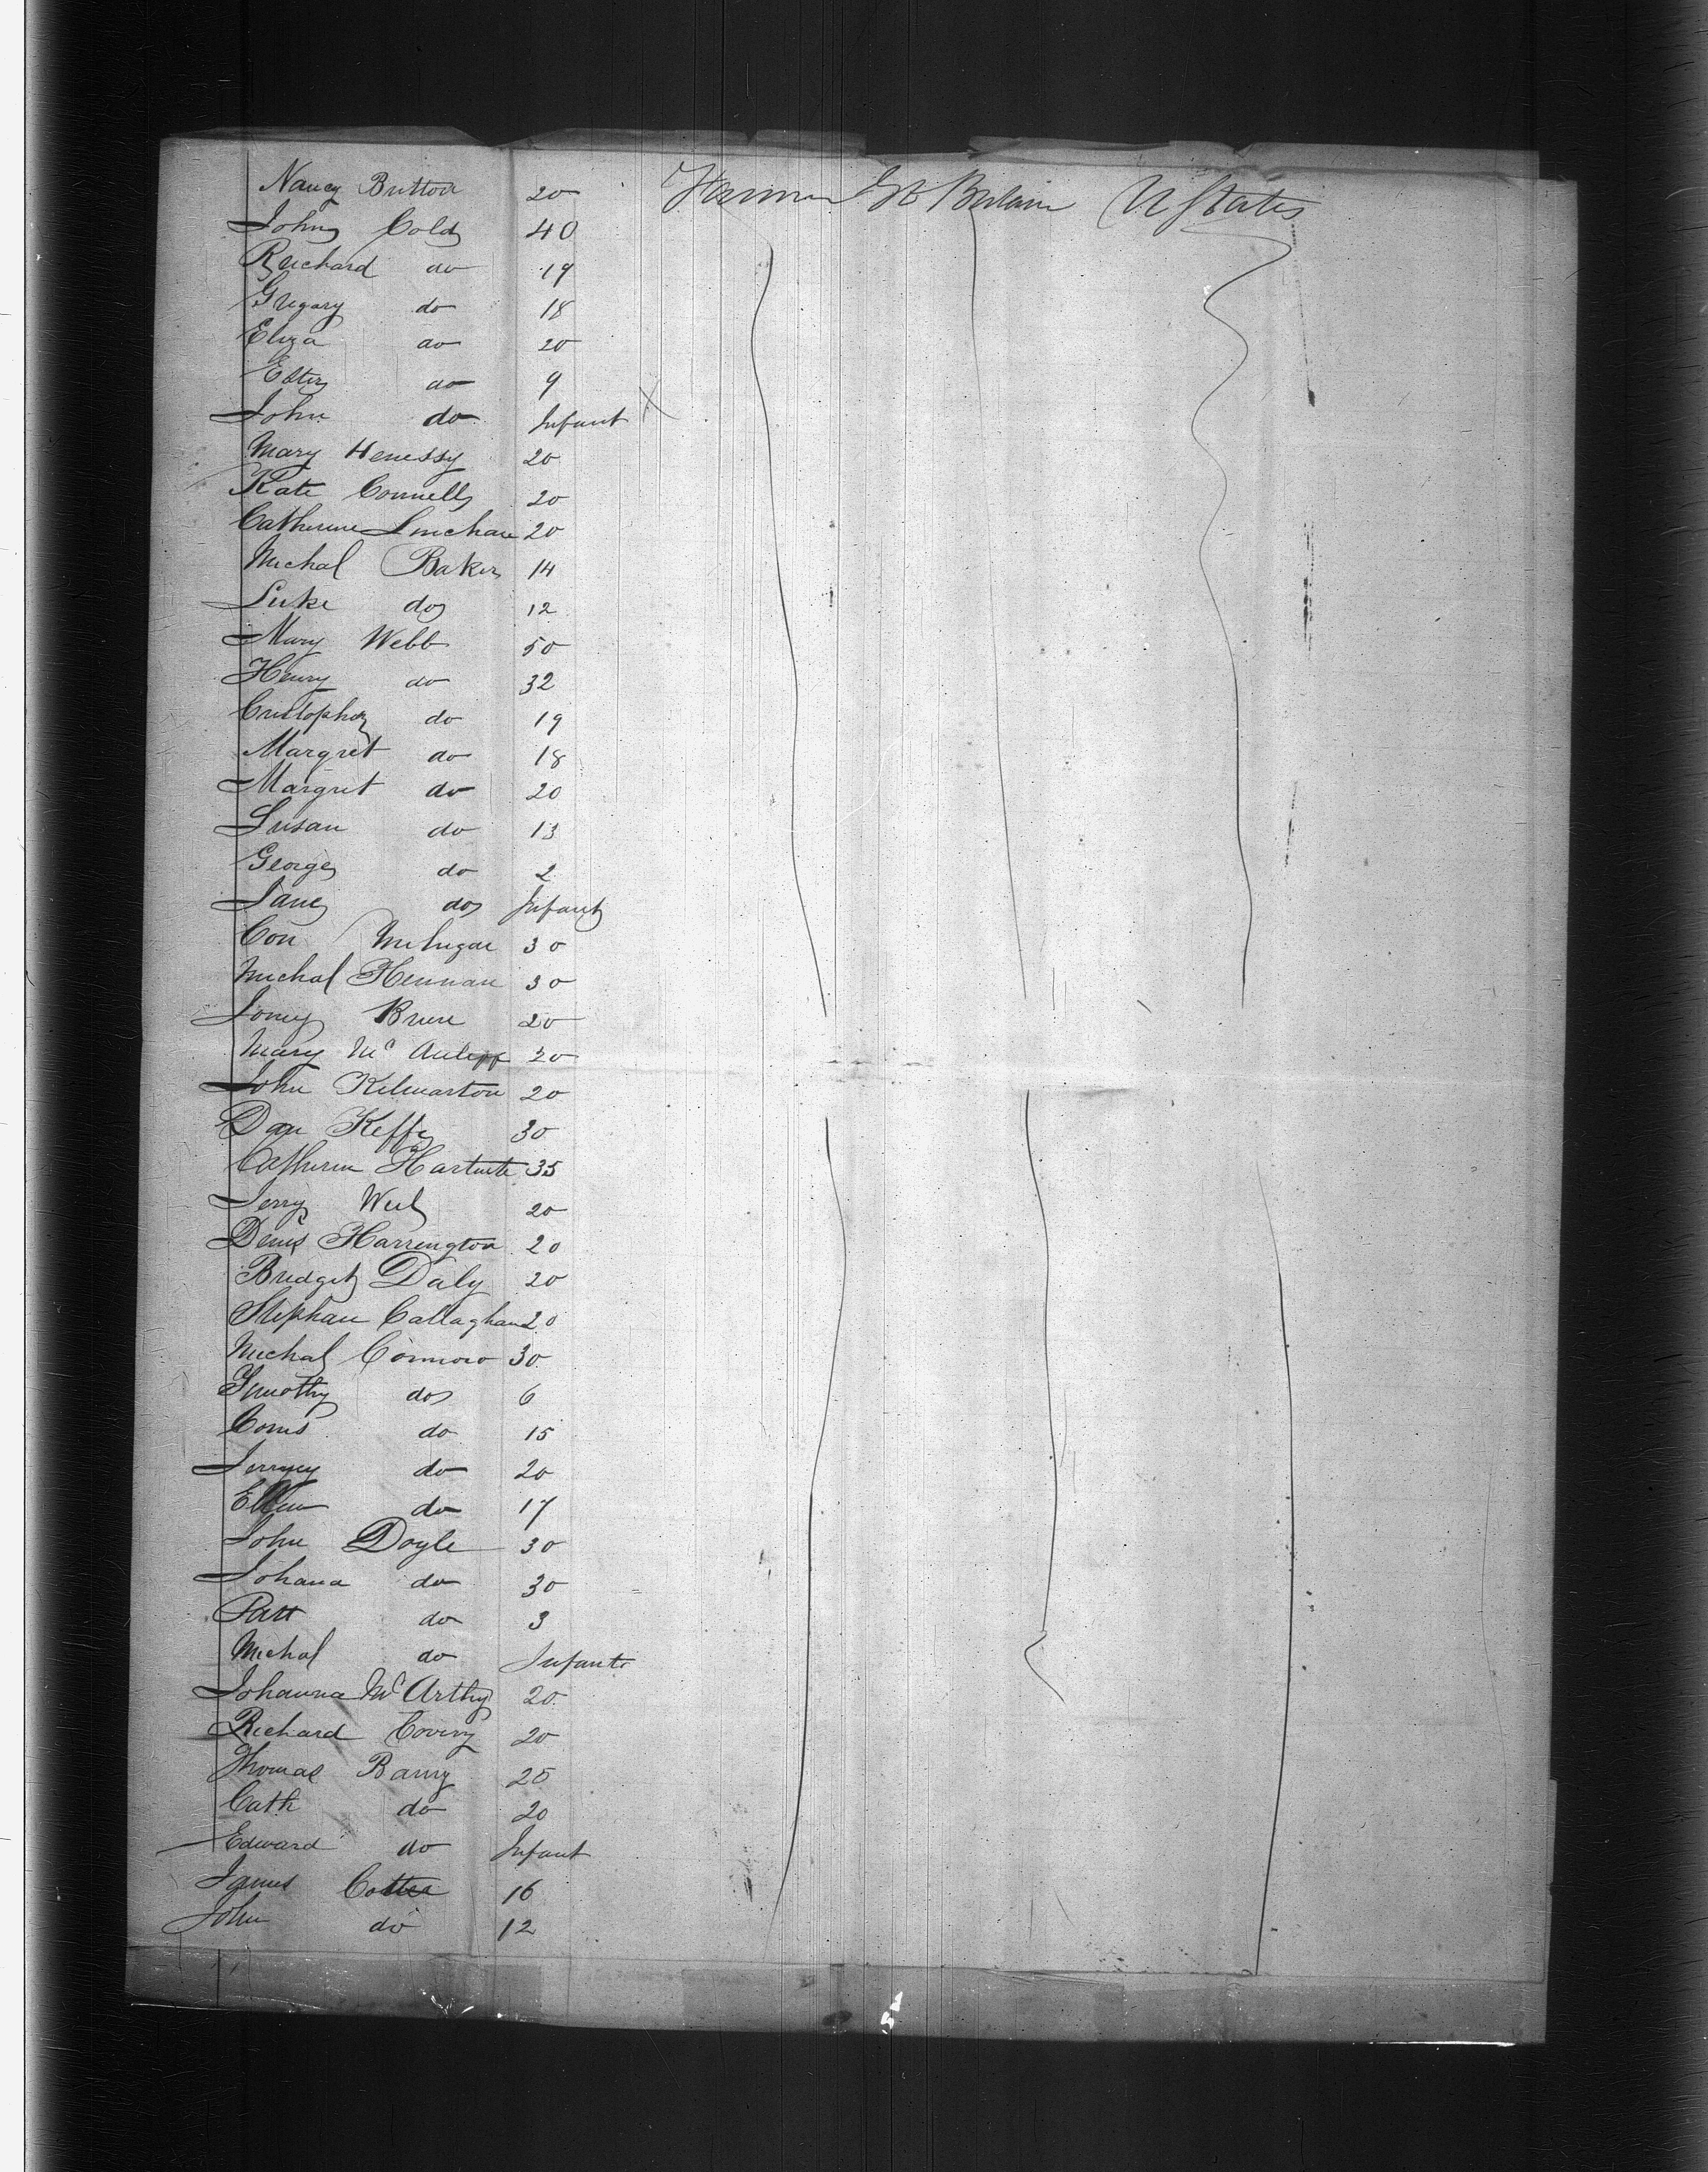 Nancy Button 20 Farmer Gt Britain U States
John Cold 40
Reichard do 19
Gregary do 18
Eliza do 20
Ester do 9
John do Infant X
Mary Henessy 20
Kate Connell 20
Catherine Linehan 20
Michal Baker 14
Luke do 12
Mary Webb 50
Henry do 32
Cristopher do 19
Margret do 18
Margret do 20
Susan do 13
George do 2
Jane do Infant
Con 30
Michal Hennan 30
20
Mary Mc Auliff 20
John Kilmarton 20
Dan Keffe 30
Catherin Hartnete 35
Jerry 20
Denis Harrington 20
Bridget Daly 20
Stephan Callaghan 20
Michal Connoro 30
Timothy do 6
Corns do 15
Jerrmy do 20
Ellen do 17
John Doyle 30
Johana do 30
Patt do 3
Michal do Infant
Johanna Mc Arthy 20
Richard 20
Thomas Barry 25
Cath do 20
Edward do Infant
James Cotter 16
John do 12